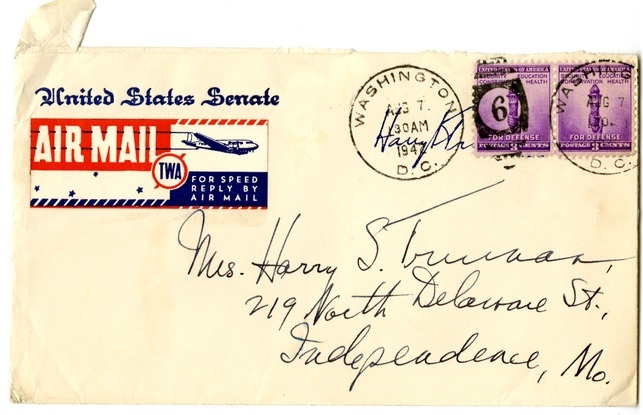 United States Senate
AIR MAIL
TWA
FOR SPEED
REPLY BY
AIR MAIL
WASHINGTON
AUG 7
30 AM
194
D. C.
Harry
6
UNITED STATES OF AMERICA
SECURITY EDUCATION
CONSERVATION HEALTH
FOR DEFENSE
POSTAGE 3 CENTS
UNITED STATES OF AMERICA
SECURITY EDUCATION
CONSERVATION HEALTH
FOR DEFENSE
POSTAGE 3 CENTS
WASHING
AUG 7
D. C.
Mrs. Harry S. Truman,
219 North Delaware St.,
Independence, Mo.